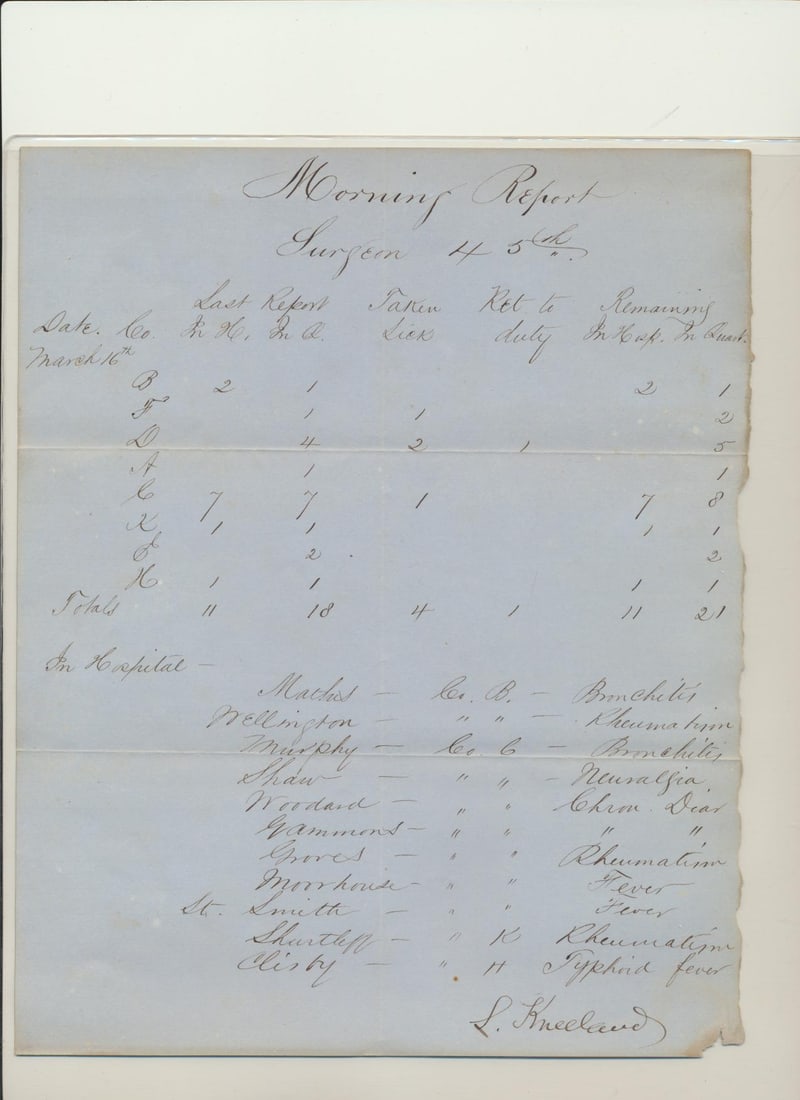 Morning Report
Surgeon 45th
Last Report Taken Ret to Remaining
Date. Co. In H. In Q. Sick duty In Hosp. In Quart.
March 16th
B 2 1 2 1
F 1 1 2
D 4 2 1 5
A 1 1
C 7 7 1 7 8
K 1 1 1 1
E 2 2
H 1 1 1 1
Totals 11 18 4 1 11 21
In Hospital —
— Co. B. — Bronchitis
Wellington — " " — Rheumatism
Murphy — Co. C — Bronchitis
Shaw — " " — Neuralgia
Woodard — " " Chron. Diar
Gammons — " " " "
Groves — " " Rheumatism
Moorhouse — " " Fever
Smith — " " Fever
Shurtleff — " K Rheumatism
Clisby — " H Typhoid fever
Kneeland